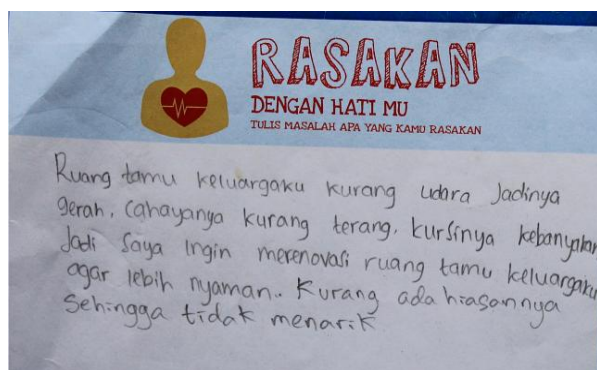 RASAKAN
DENGAN HATI MU
TULIS MASALAH APA YANG KAMU RASAKAN
Ruang tamu keluargaku kurang udara Jadinya
gerah, cahayanya kurang terang, kursinya kebanyakan
Jadi Saya Ingin merenovasi ruang tamu keluargaku
agar lebih nyaman.. Kurang ada hiasannya
Sehingga tidak menarik